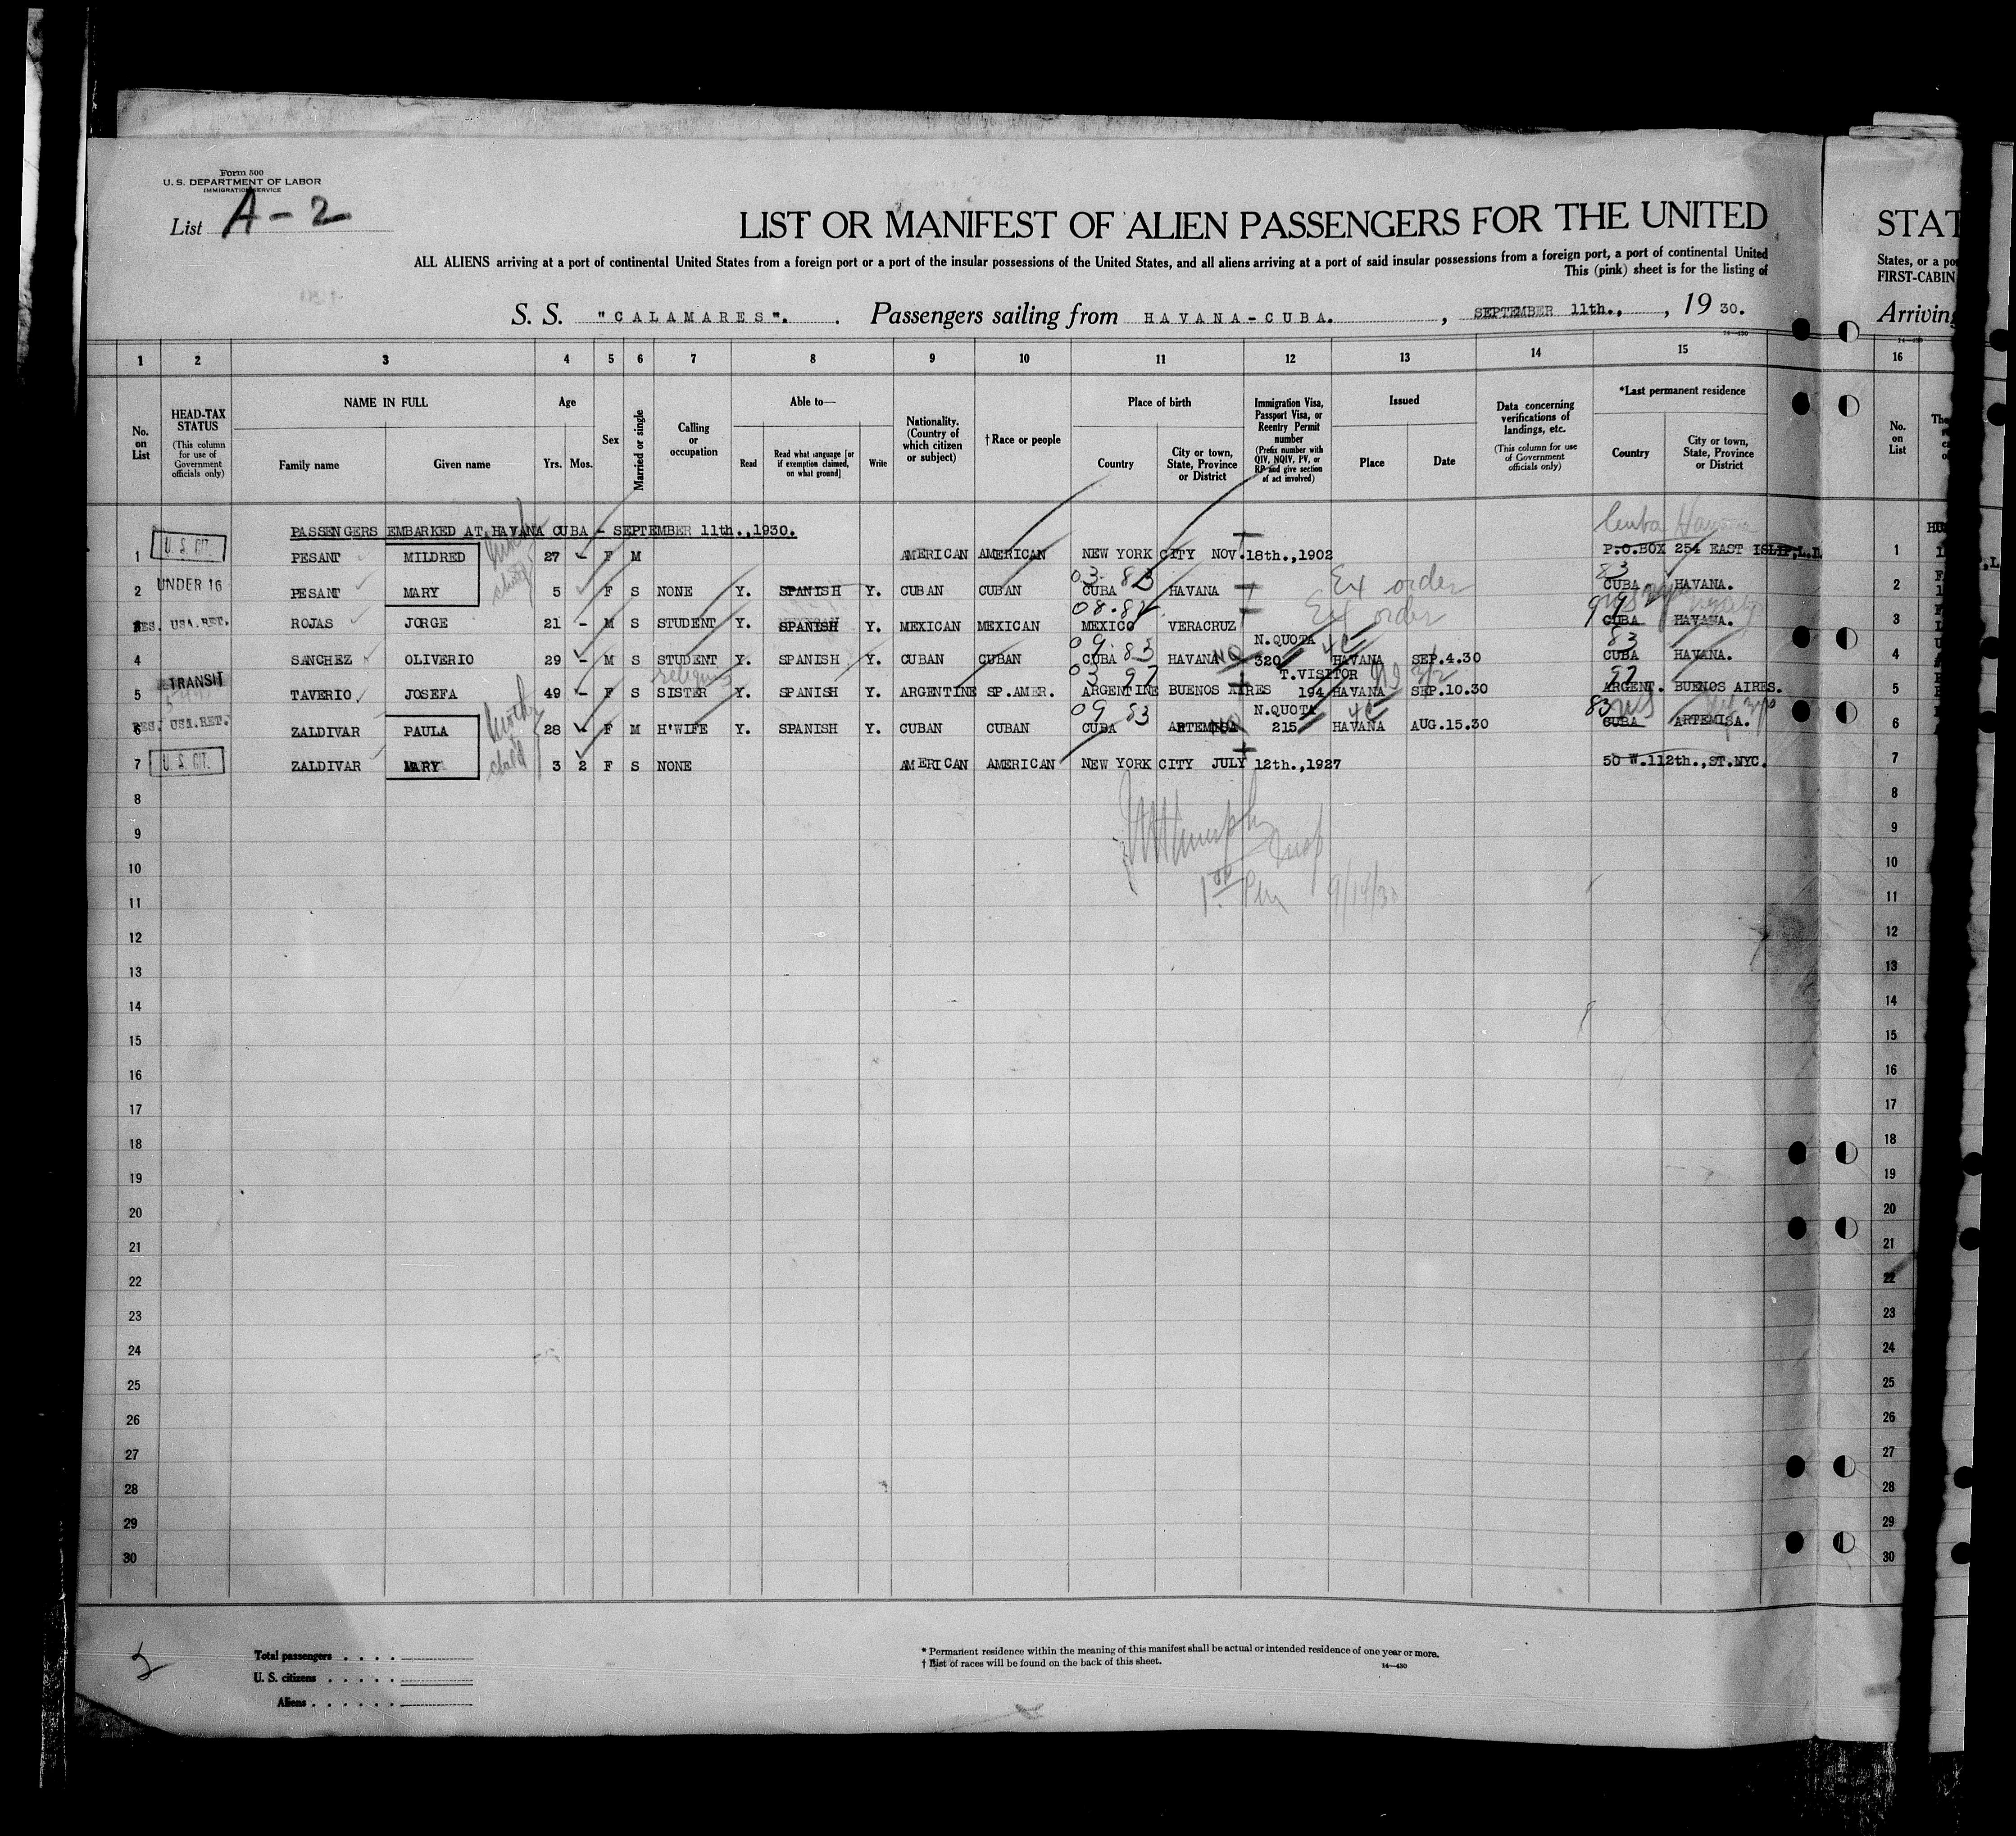 Form 500
U. S. DEPARTMENT OF LABOR
IMMIGRATION SERVICE
List A-2
LIST OR MANIFEST OF ALIEN PASSENGERS FOR THE UNITED
STAT
ALL ALIENS arriving at a port of continental United States from a foreign port or a port of the insular possessions of the United States, and all aliens arriving at a port of said insular possessions from a foreign port, a port of continental United
States, or a po
This (pink) sheet is for the listing of
FIRST-CABIN
S. S. "CALAMARES". Passengers sailing from HAVANA-CUBA. , SEPTEMBER 11th., , 19 30.
Arriving
14—430
1 2 3 4 5 6 7 8 9 10 11 12 13 14 15 16
No. on List
HEAD-TAX STATUS (This column for use of Government officials only)
NAME IN FULL
Family name Given name
Age
Yrs. Mos.
Sex
Married or single
Calling or occupation
Able to—
Read
Read what language [or if exemption claimed, on what ground]
Write
Nationality. (Country of which citizen or subject)
† Race or people
Place of birth
Country
City or town, State, Province or District
Immigration Visa, Passport Visa, or Reentry Permit number (Prefix number with QIV, NQIV, PV, or RP and give section of act involved)
Issued
Place Date
Data concerning verifications of landings, etc. (This column for use of Government officials only)
*Last permanent residence
Country
City or town, State, Province or District
No. on List
PASSENGERS EMBARKED AT HAVANA CUBA - SEPTEMBER 11th.,1930.
Cuba Havana
1 U. S. CIT. PESANT MILDRED 27 - F M AMERICAN AMERICAN NEW YORK CITY NOV.18th.,1902 P.O.BOX 254 EAST ISLIP,L.I. 1
03 83 83
2 UNDER 16 PESANT MARY 5 F S NONE Y. SPANISH Y. CUBAN CUBAN CUBA HAVANA Ex order CUBA HAVANA. 2
08.82
3 RES. USA.RET. ROJAS JORGE 21 - M S STUDENT Y. SPANISH Y. MEXICAN MEXICAN MEXICO VERACRUZ Ex order CUBA HAVANA. 3
09.83 N.QUOTA 4C 83
4 SANCHEZ OLIVERIO 29 - M S STUDENT Y. SPANISH Y. CUBAN CUBAN CUBA HAVANA NQ 320 HAVANA SEP.4.30 CUBA HAVANA. 4
religious 03 97 T.VISITOR 3/2 97
5 TRANSIT TAVERIO JOSEFA 49 - F S SISTER Y. SPANISH Y. ARGENTINE SP.AMER. ARGENTINE BUENOS AIRES 194 HAVANA SEP.10.30 ARGENT. BUENOS AIRES. 5
Mother 09 83 N.QUOTA 4C 83 US
6 RES. USA.RET. ZALDIVAR PAULA 28 - F M H'WIFE Y. SPANISH Y. CUBAN CUBAN CUBA ARTEMISA NQ 215 HAVANA AUG.15.30 CUBA ARTEMISA. 6
7 U. S. CIT. ZALDIVAR MARY child 3 2 F S NONE AMERICAN AMERICAN NEW YORK CITY JULY 12th.,1927 50 W.112th.,ST.NYC. 7
8 8
9 9
10 10
9/14/30
11 11
12 12
13 13
14 14
15 15
16 16
17 17
18 18
19 19
20 20
21 21
22 22
23 23
24 24
25 25
26 26
27 27
28 28
29 29
30 30
Total passengers . . . .
U. S. citizens . . . . .
Aliens . . . . . .
* Permanent residence within the meaning of this manifest shall be actual or intended residence of one year or more.
† List of races will be found on the back of this sheet.
14—430